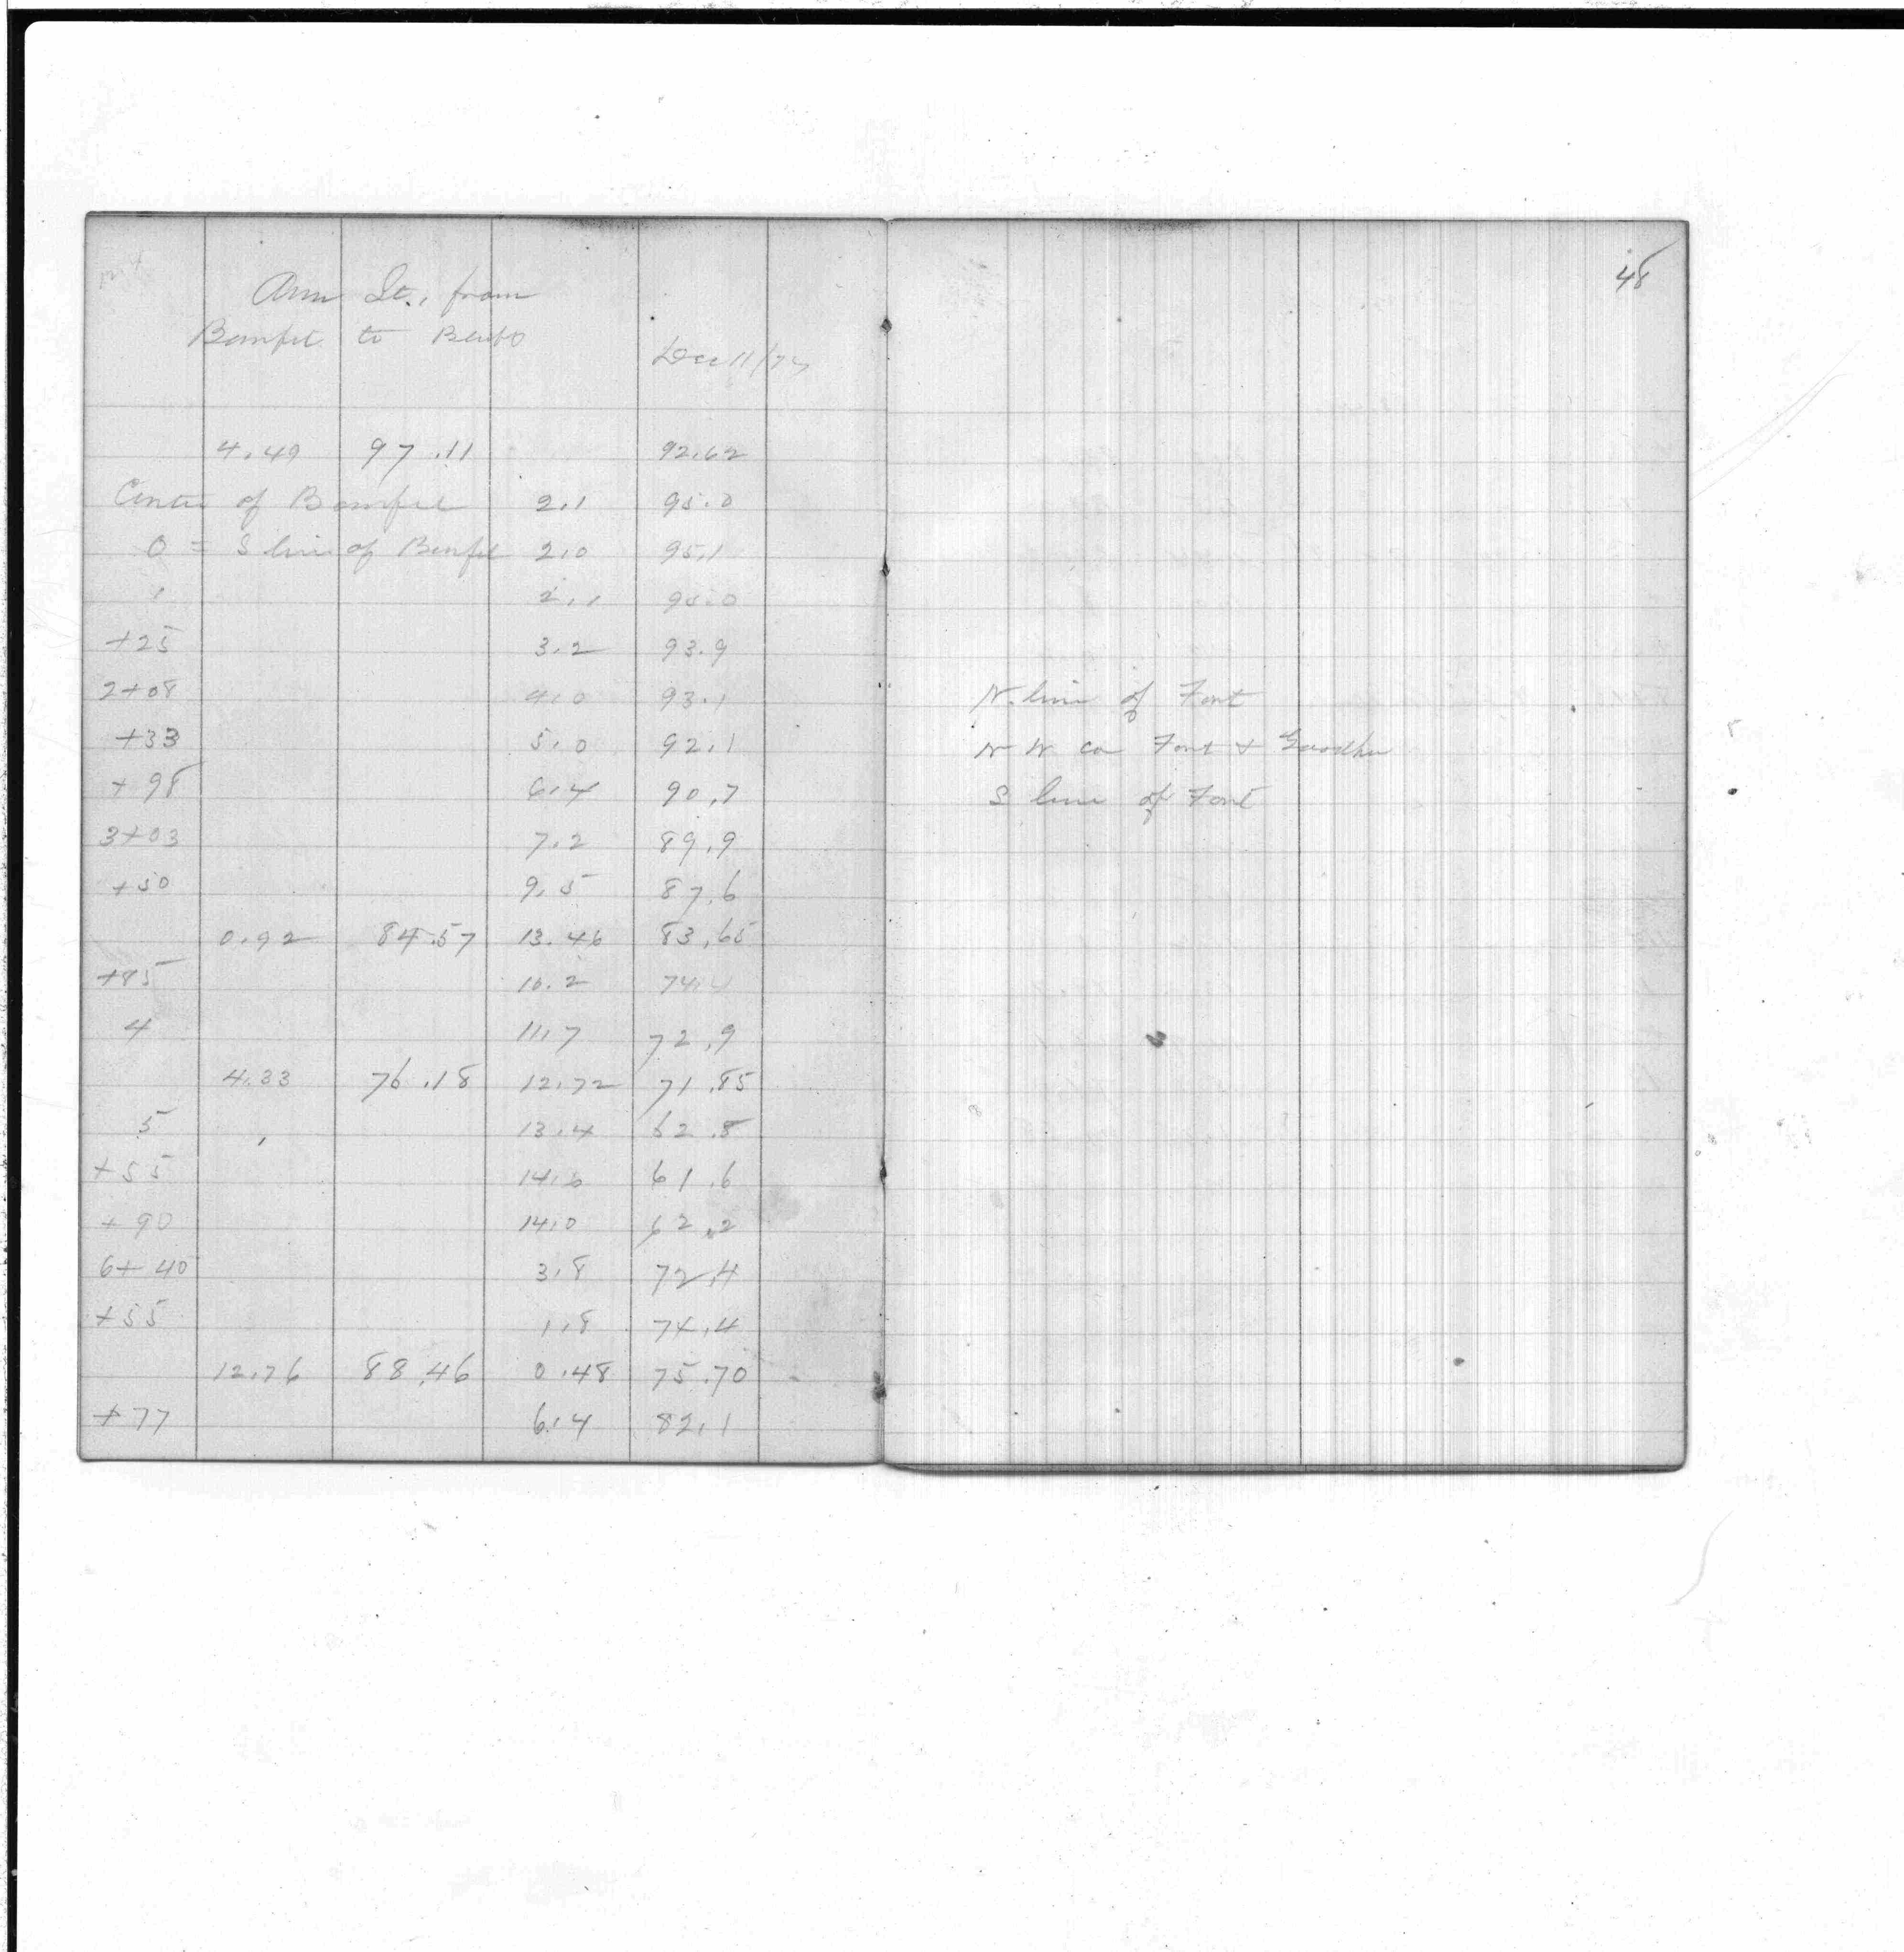 48
Ann St., from
to
Dec 11/
4.49 97.11 92.62
of 2.1 95.0
0 = S line of 2.0 95.1
1 2.1 95.0
+25 3.2 93.9
2+08 4.0 93.1
+33 5.0 92.1
+98 6.4 90.7
3+03 7.2 89.9
+50 9.5 87.6
0.92 84.57 13.46 83.65
+85 10.2 74.4
4 11.7 72.9
4.33 76.18 12.72 71.85
5 13.4 62.8
+55 14.6 61.6
+90 14.0 62.2
6+40 3.8 72.4
+55 1.8 74.4
12.76 88.46 0.48 75.70
+77 6.4 82.1
N. line of Font
N W co Font +
S line of Font